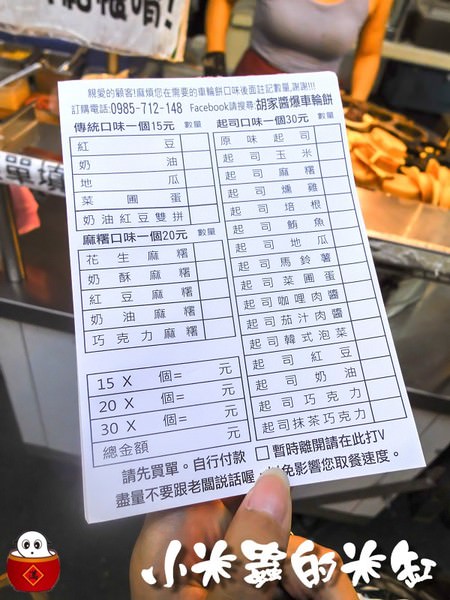 親愛的顧客!麻煩您在需要的車輪餅口味後面註記數量,謝謝!!!
訂購電話:0985-712-148 Facebook請搜尋:胡家醬爆車輪餅
傳統口味一個15元 數量
紅豆
奶油
地瓜
菜圃蛋
奶油紅豆雙拼
麻糬口味一個20元 數量
花生麻糬
奶酥麻糬
紅豆麻糬
奶油麻糬
巧克力麻糬
起司口味一個30元 數量
原味起司
起司玉米
起司麻糬
起司燻雞
起司培根
起司鮪魚
起司地瓜
起司馬鈴薯
起司菜圃蛋
起司咖哩肉醬
起司茄汁肉醬
起司韓式泡菜
起司紅豆
起司奶油
起司巧克力
起司抹茶巧克力
15 X 個= 元
20 X 個= 元
30 X 個= 元
總金額 元
請先買單。自行付款
盡量不要跟老闆說話喔
□暫時離開請在此打V
免影響您取餐速度。
單填
小米蟲的米缸